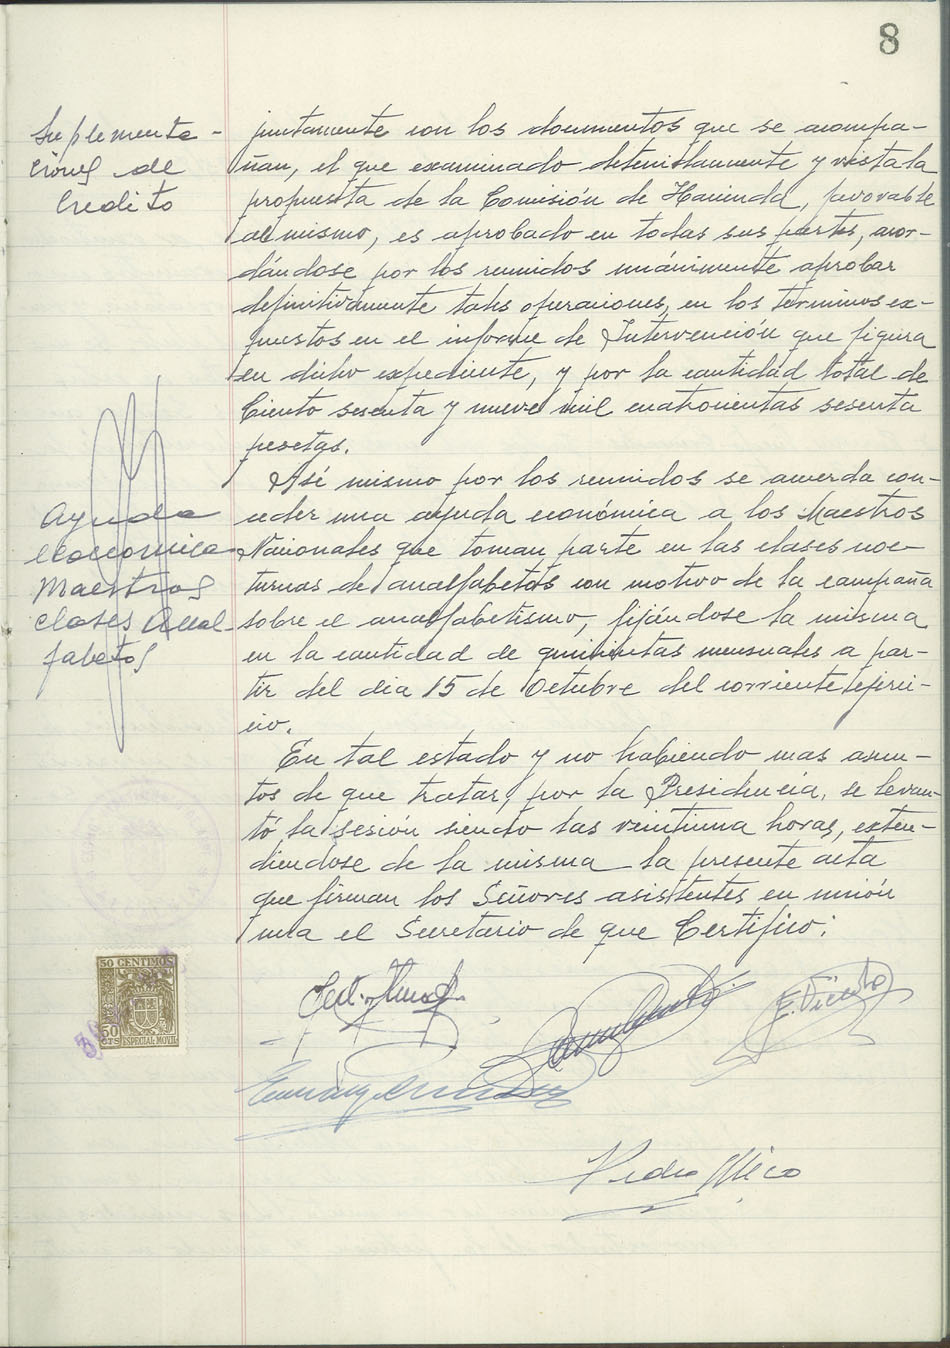 8
Suplementa-
ciones de
Credito
juntamente con los documentos que se acompa-
ñan, el que examinado detenidamente y vista la
propuesta de la Comisión de Hacienda, favorable
al mismo, es aprobado en todas sus partes, acor-
dándose por los reunidos unánimente aprobar
definitivamente tales operaciones, en los terminos ex-
puestos en el informe de Intervención que figura
en dicho expediente, y por la cantidad total de
Ciento sesenta y nueve mil cuatrocientas sesenta
pesetas.
Así mismo por los reunidos se acuerda con-
ceder una ayuda económica a los Maestros
Nacionales que toman parte en las clases noc-
turnas de analfabetos con motivo de la campaña
sobre el analfabetismo, fijándose la misma
en la cantidad de quinientas mensuales a par-
tir del dia 15 de Octubre del corriente ejerci-
cio.
Ayuda
economica
Maestros
clases Anal-
fabetos
En tal estado y no habiendo mas asun-
tos de que tratar, por la Presidencia, se levan-
tó la sesión siendo las veintiuna horas, exten-
diendose de la misma la presente acta
que firman los Señores asistentes en unión
una el Secretario de que Certifico:
50 CENTIMOS
50
CTS
ESPECIAL MOVIL
E. Vicente
Pedro Mico